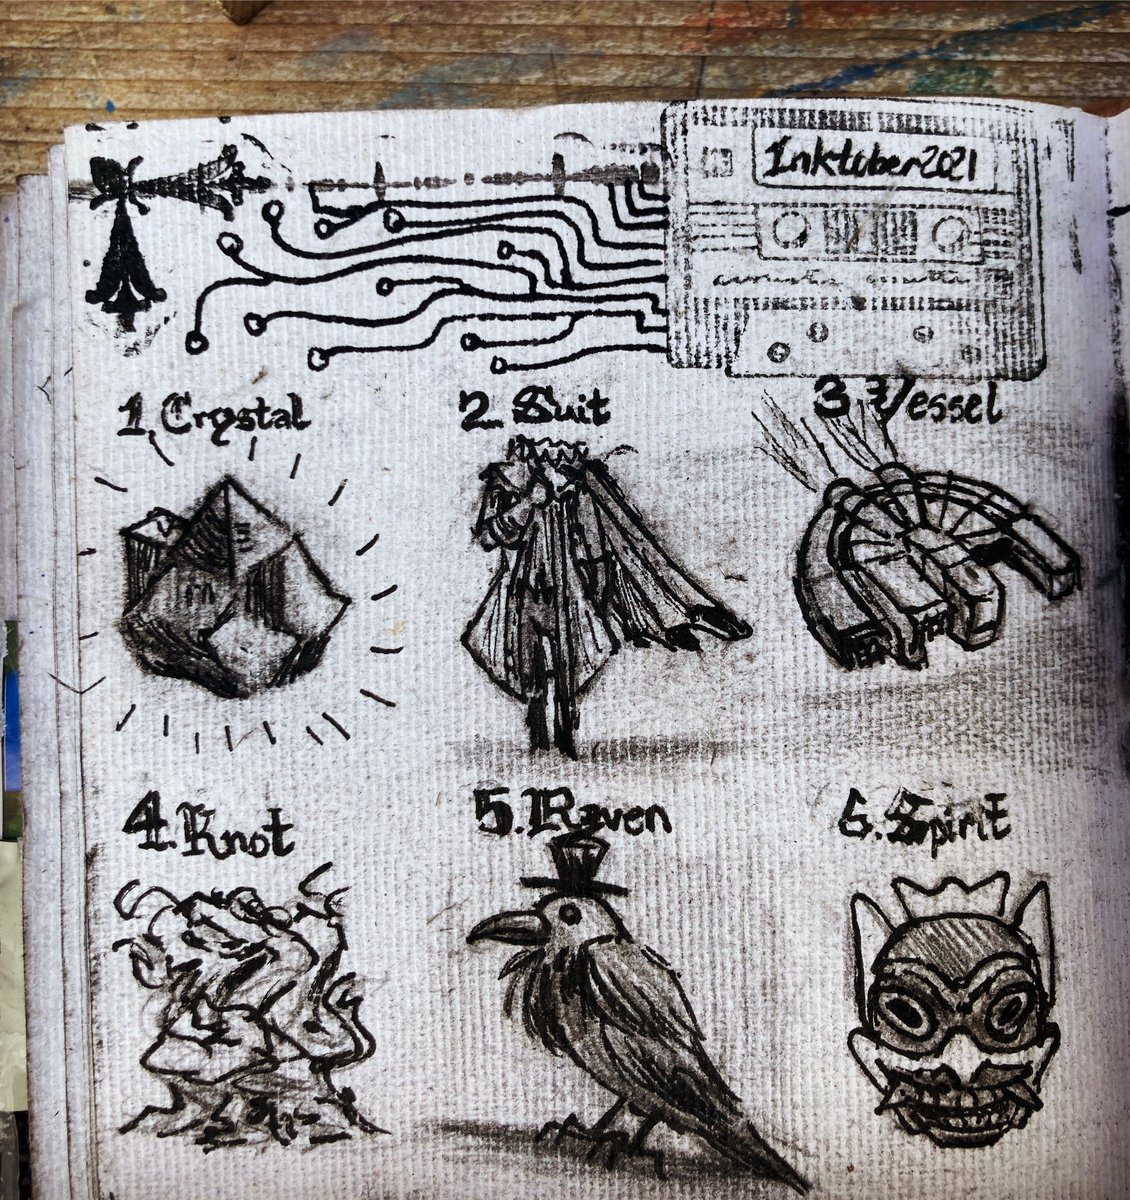 Inktober2021
1. Crystal
2. Suit
3. Vessel
4. Knot
5. Raven
6. Spirit